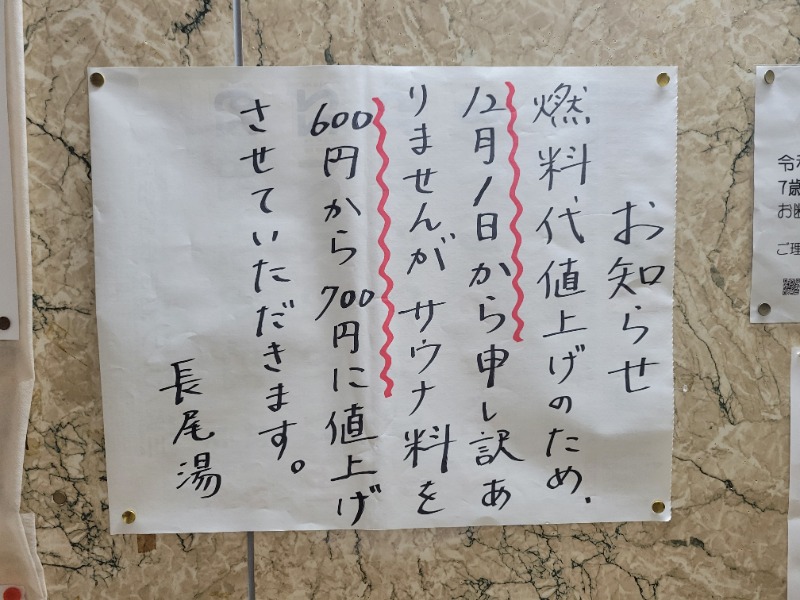 お知らせ
燃料代値上げのため、
12月1日から申し訳あ
りませんがサウナ料を
600円から700円に値上げ
させていただきます。
長尾湯
令和
7歳
お断
ご理